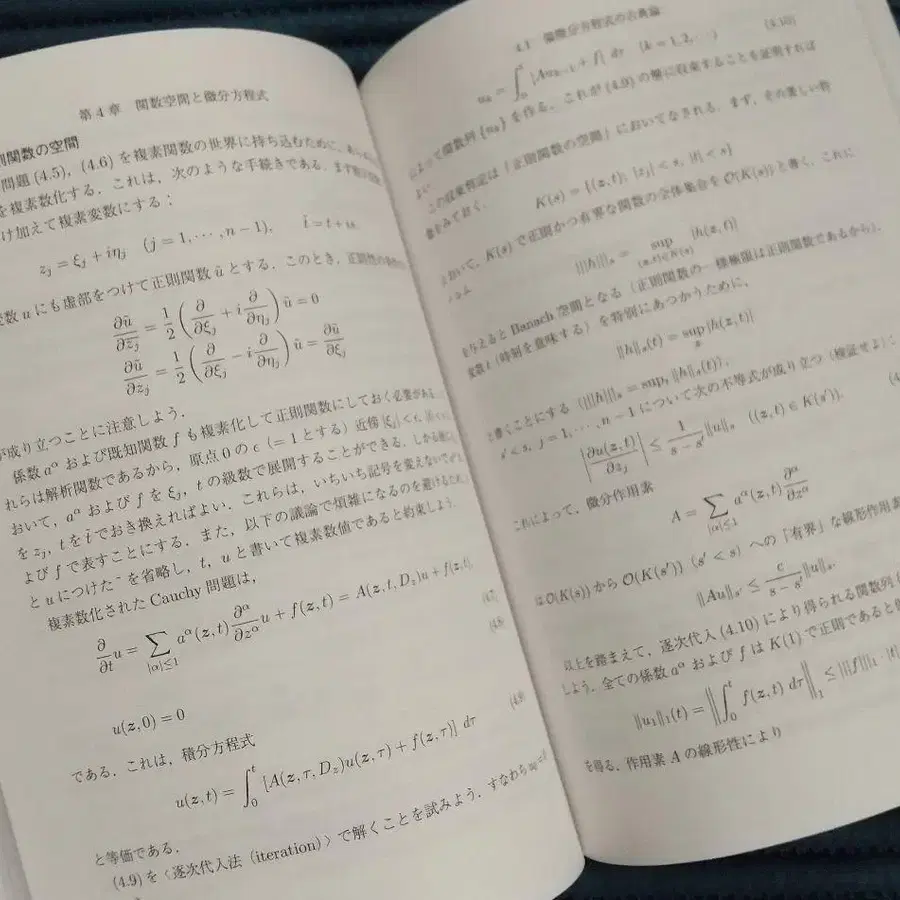 第4章 関数空間と微分方程式
則関数の空間
問題 (4.5), (4.6) を複素関数の世界に持ち込むために,
を複素数化する．これは，次のような手続きである．まず
け加えて複素変数にする：
z_j = ξ_j + iη_j (j = 1, ⋯, n − 1),
変数 u にも虚部をつけて正則関数 ũ とする．このとき，正則性の
∂ũ/∂z̄_j = 1/2 (∂/∂ξ_j + i ∂/∂η_j) ũ = 0
∂ũ/∂z_j = 1/2 (∂/∂ξ_j − i ∂/∂η_j) ũ = ∂ũ/∂ξ_j
が成り立つことに注意しよう．
係数 a^α および既知関数 f も複素化して正則関数にしておく必要がある．
れらは解析関数であるから，原点 0 の ε (= 1 とする) 近傍 |ξ_j| < ε,
おいて，a^α および f を ξ_j, t の級数で展開することができる．しかる後に，
を z_j, t を t̃ でおき換えればよい．これらは，いちいち記号を変えないで
よび f で表すことにする．また，以下の議論で煩雑になるのを避けるため，
と u につけた ~ を省略し，t, u と書いて複素数値であると約束しよう．
複素数化された Cauchy 問題は，
∂/∂t u = Σ_{|α|≤1} a^α(z, t) ∂^α/∂z^α u + f(z, t) = A(z, t, D_z)u + f(z, t), (4.7)
(4.8)
u(z, 0) = 0
である．これは，積分方程式
(4.9)
u(z, t) = ∫_0^t [A(z, τ, D_z)u(z, τ) + f(z, τ)] dτ
と等価である．
(4.9) を〈逐次代入法 (iteration)〉で解くことを試みよう．すなわち
4.1 偏微分方程式の古典論
u_k = ∫_0^t [Au_{k−1} + f] dτ (k = 1, 2, ⋯) (4.10)
によって関数列 {u_k} を作る．これが (4.9) の解に収束することを証明すれば
よい．
この収束判定は「正則関数の空間」においてなされる．まず，その美しい特
徴をみておく．
K(s) = {(z, t); |z_j| < s, |t| < s}
とおいて，K(s) で正則かつ有界な関数の全体集合を O(K(s)) と書く．これに
ノルム
|||h|||_s = sup_{(z,t)∈K(s)} |h(z, t)|
を与えると Banach 空間となる (正則関数の一様極限は正則関数であるから)．
変数 t (時刻を意味する) を特別にあつかうために，
‖h‖_s(t) = sup_z |h(z, t)|
と書くことにする (|||h|||_s = sup_t ‖h‖_s(t))．
s' < s, j = 1, ⋯, n − 1 について次の不等式が成り立つ (検証せよ)
|∂u(z, t)/∂z_j| ≤ 1/(s − s') ‖u‖_s ((z, t) ∈ K(s')).
これによって，微分作用素
A = Σ_{|α|≤1} a^α(z, t) ∂^α/∂z^α
は O(K(s)) から O(K(s')) (s' < s) への「有界」な線形作用素
‖Au‖_{s'} ≤ c/(s − s') ‖u‖_s.
以上を踏まえて，逐次代入 (4.10) により得られる関数列
しよう．全ての係数 a^α および f は K(1) で正則であると
‖u_1‖_1(t) = ‖∫_0^t f(z, t) dτ‖_1 ≤ |||f|||_1 · |t|
を得る．作用素 A の線形性により